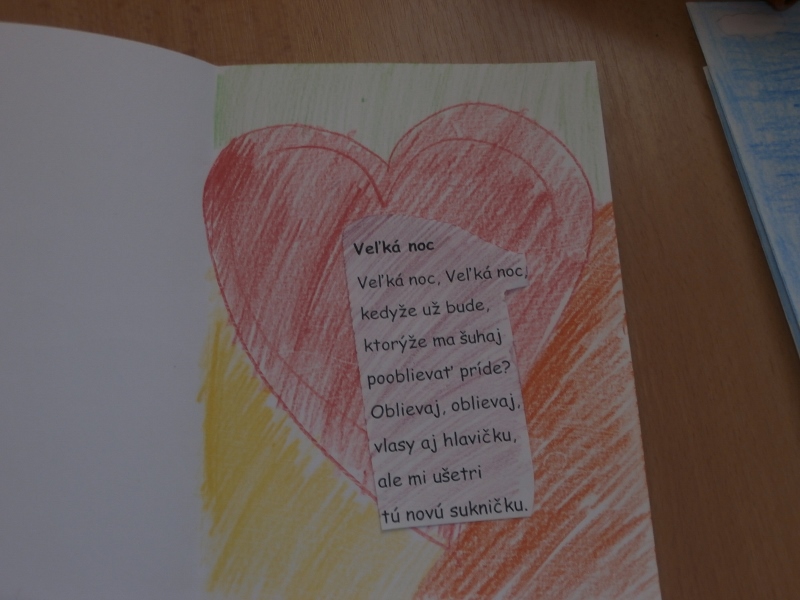 Veľká noc
Veľká noc, Veľká noc,
kedyže už bude,
ktorýže ma šuhaj
pooblievať príde?
Oblievaj, oblievaj,
vlasy aj hlavičku,
ale mi ušetri
tú novú sukničku.